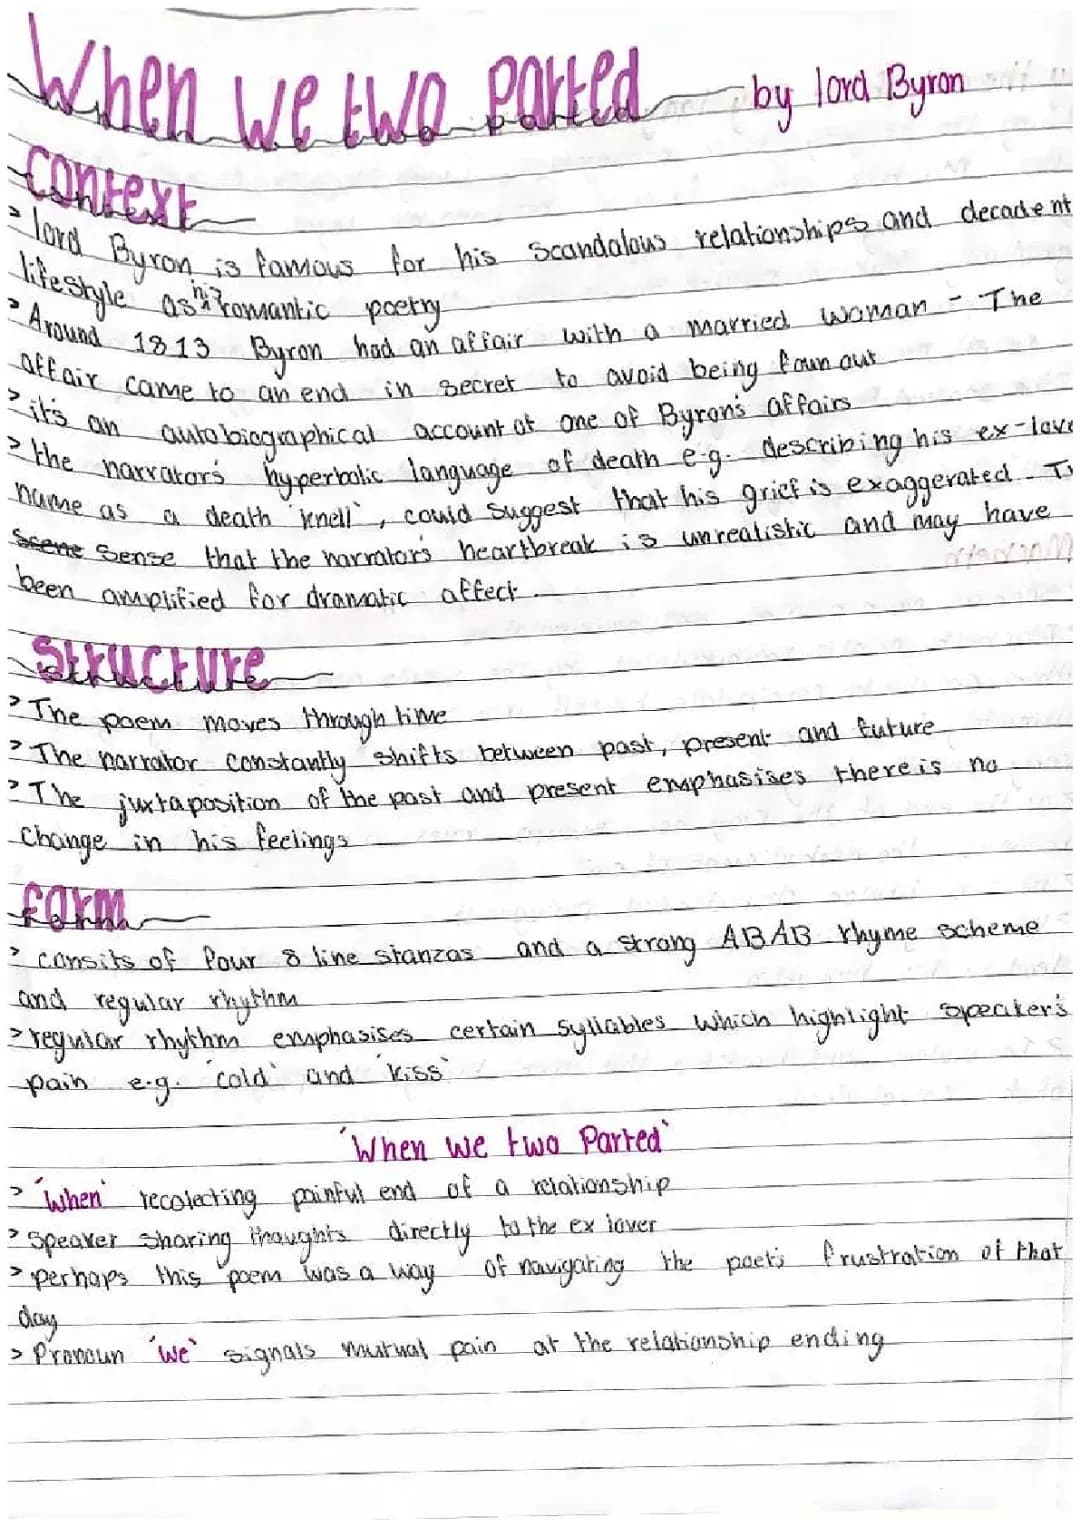 When we two parted by lord Byron
Context
> lord Byron is famous for his scandalous relationships and decadent
lifestyle as his romantic poetry
> Around 1813 Byron had an affair with a married woman - The
affair came to an end in secret to avoid being foun out
> it's an autobiographical account of one of Byron's affairs
> the narrator's hyperbolic language of death e.g. describing his ex-love
name as a death 'knell', could suggest that his grief is exaggerated.
Scene Sense that the narrator's heartbreak is unrealistic and may have
been amplified for dramatic affect.
Structure
> The poem moves through time
> The narrator constantly shifts between past, present and future
> The juxtaposition of the past and present emphasises there is no
change in his feelings
form
> consits of four 8 line stanzas and a strong ABAB rhyme scheme
and regular rhythm
> regular rhythm emphasises certain syllables which highlight speaker's
pain e.g. 'cold' and 'kiss'
'When we two Parted'
> 'When' recolecting painful end of a relationship
> speaker sharing thoughts directly to the ex lover
> perhaps this poem was a way of navigating the poet's frustration of that
day
> Pronoun 'we' signals mutual pain at the relationship ending